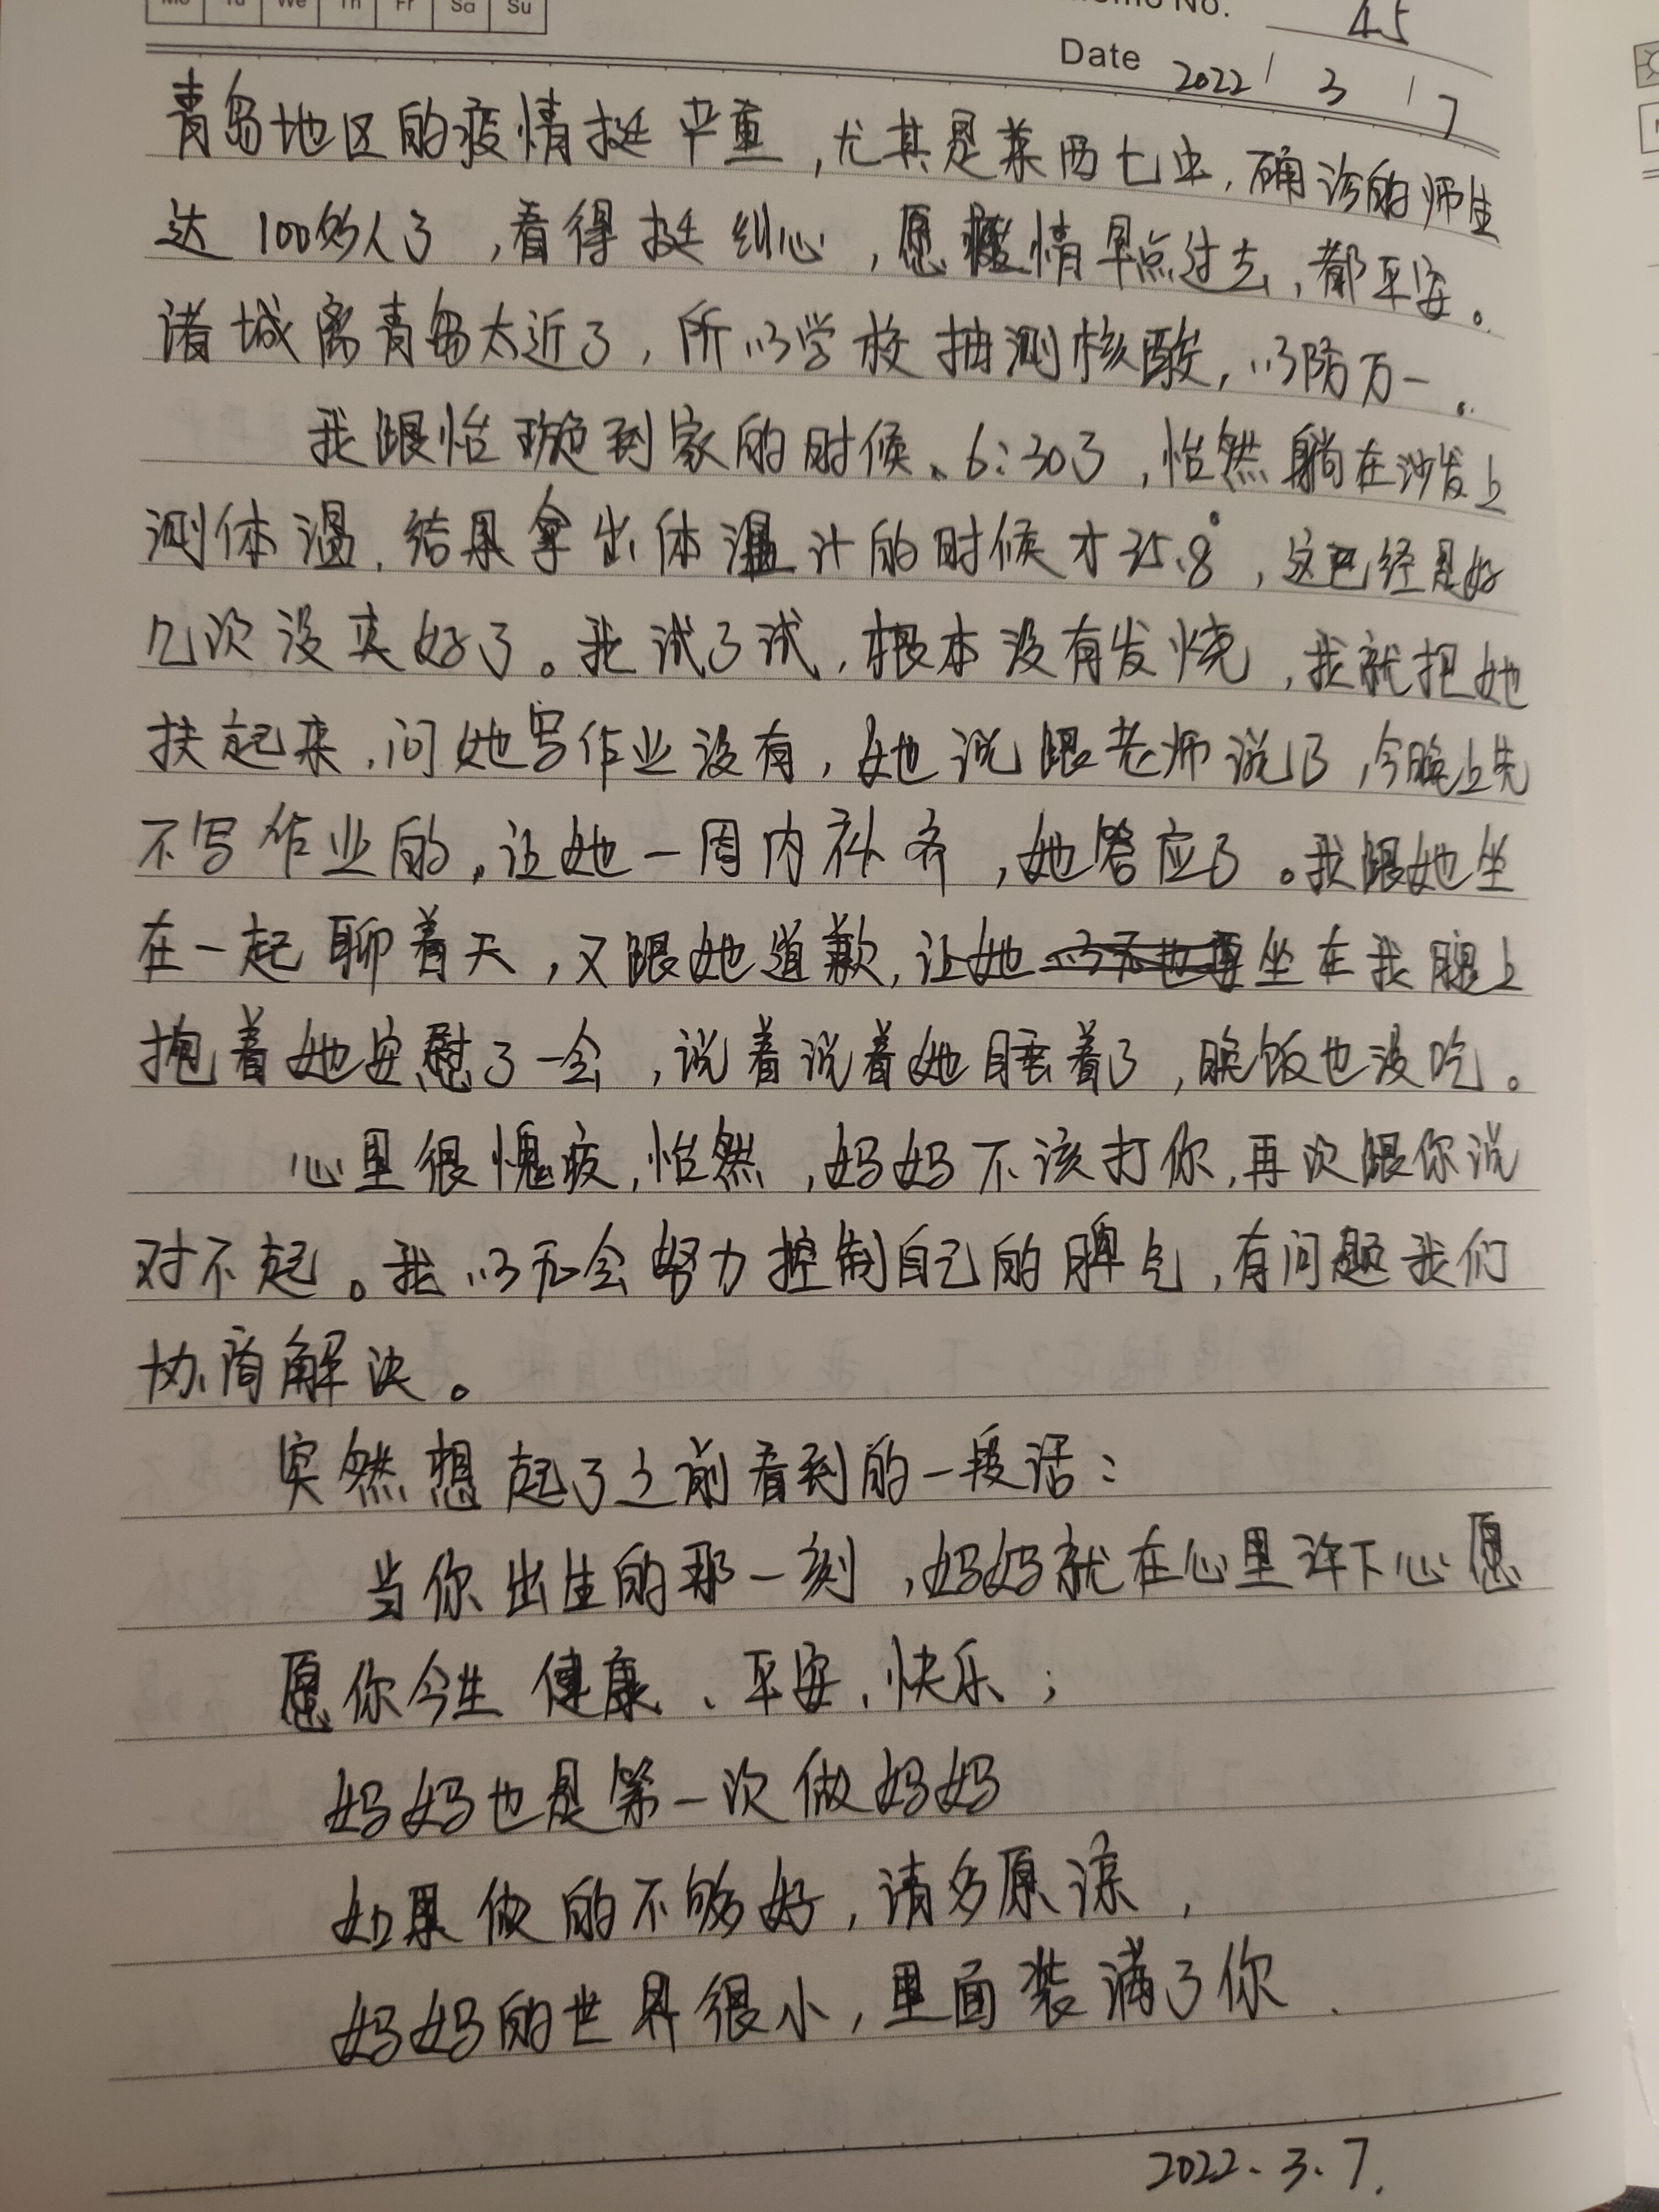 Mo Tu We Th Fr Sa Su
Memo No. 45
Date 2022 / 3 / 7
青岛地区的疫情挺严重,尤其是莱西七中,确诊的师生
达100多人了,看得挺纠心,愿疫情早点过去,都平安。
诸城离青岛太近了,所以学校抽测核酸,以防万一。
我跟怡璇到家的时候、6:30了,怡然躺在沙发上
测体温,结果拿出体温计的时候才35.8°,这已经是好
几次没夹好了。我试了试,根本没有发烧,我就把她
扶起来,问她写作业没有,她说跟老师说了,今晚上先
不写作业的,让她一周内补齐,她答应了。我跟她坐
在一起聊着天,又跟她道歉,让她坐在我腿上
抱着她安慰了一会,说着说着她睡着了,晚饭也没吃。
心里很愧疚,怡然,妈妈不该打你,再次跟你说
对不起。我以后会努力控制自己的脾气,有问题我们
协商解决。
突然想起了之前看到的一段话:
当你出生的那一刻,妈妈就在心里许下心愿
愿你今生健康、平安、快乐;
妈妈也是第一次做妈妈
如果做的不够好,请多原谅,
妈妈的世界很小,里面装满了你、
2022.3.7.